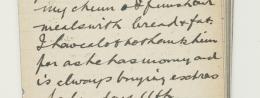 my chum & I finish our
meals with bread & fat.
I have a lot to thank him
for as he has money and
is always buying extras